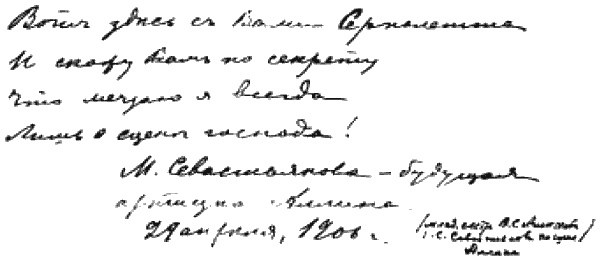 Вотъ здесь съ Вами Серполетта
И скажу Вамъ по секрету
Что мечтаю я всегда
Лишь о сцене господа!
М. Севастьянова – будущая
артистка Аллина
29 апреля, 1906 г.